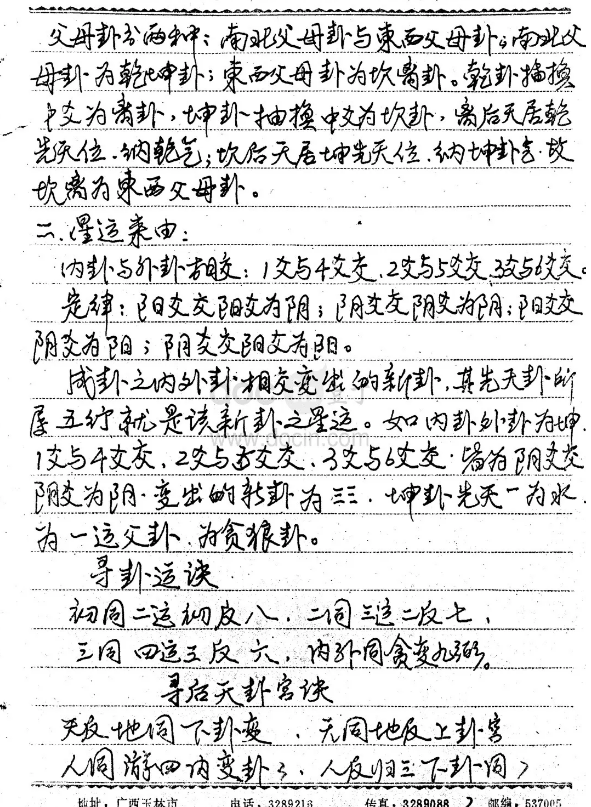 父母卦分两种：南北父母卦与東西父母卦；南北父
母卦为乾坤卦；東西父母卦为坎离卦。乾卦抽換
中爻为离卦，坤卦抽換中爻为坎卦，离后天居乾
先天位、纳乾气；坎后天居坤先天位、纳坤卦气·故
坎离为東西父母卦。
二、星运来由：
内卦与外卦相交：1爻与4爻交、2爻与5爻交、3爻与6爻交。
定律：阳爻交阳爻为阴；阴爻交阴爻为阴；阳爻交
阴爻为阳；阴爻交阳爻为阳。
成卦之内外卦相交变出的新卦，其先天卦所
属五行就是该新卦之星运。如内卦外卦为坤·
1爻与4爻交、2爻与5爻交、3爻与6爻交·皆为阴爻交
阴爻为阴·变出的新卦为☷·坤卦先天一为水·
为一运父卦、为贪狼卦。
寻卦运诀
初同二运初反八、二同三运二反七、
三同四运三反六、内外同贪变九弼。
寻后天卦宫诀
天反地同下卦变、天同地反上卦宫
人同游四内变卦、人反归三下卦同
地址：广西玉林市 电话：3289216 传真：3289088 2 邮编：537005
www.docin.com